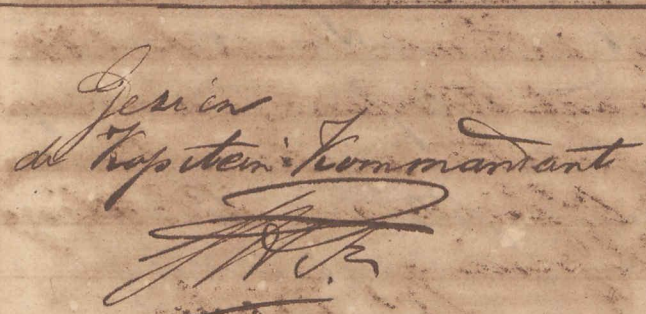 Gezien
de Kapitein-Kommandant